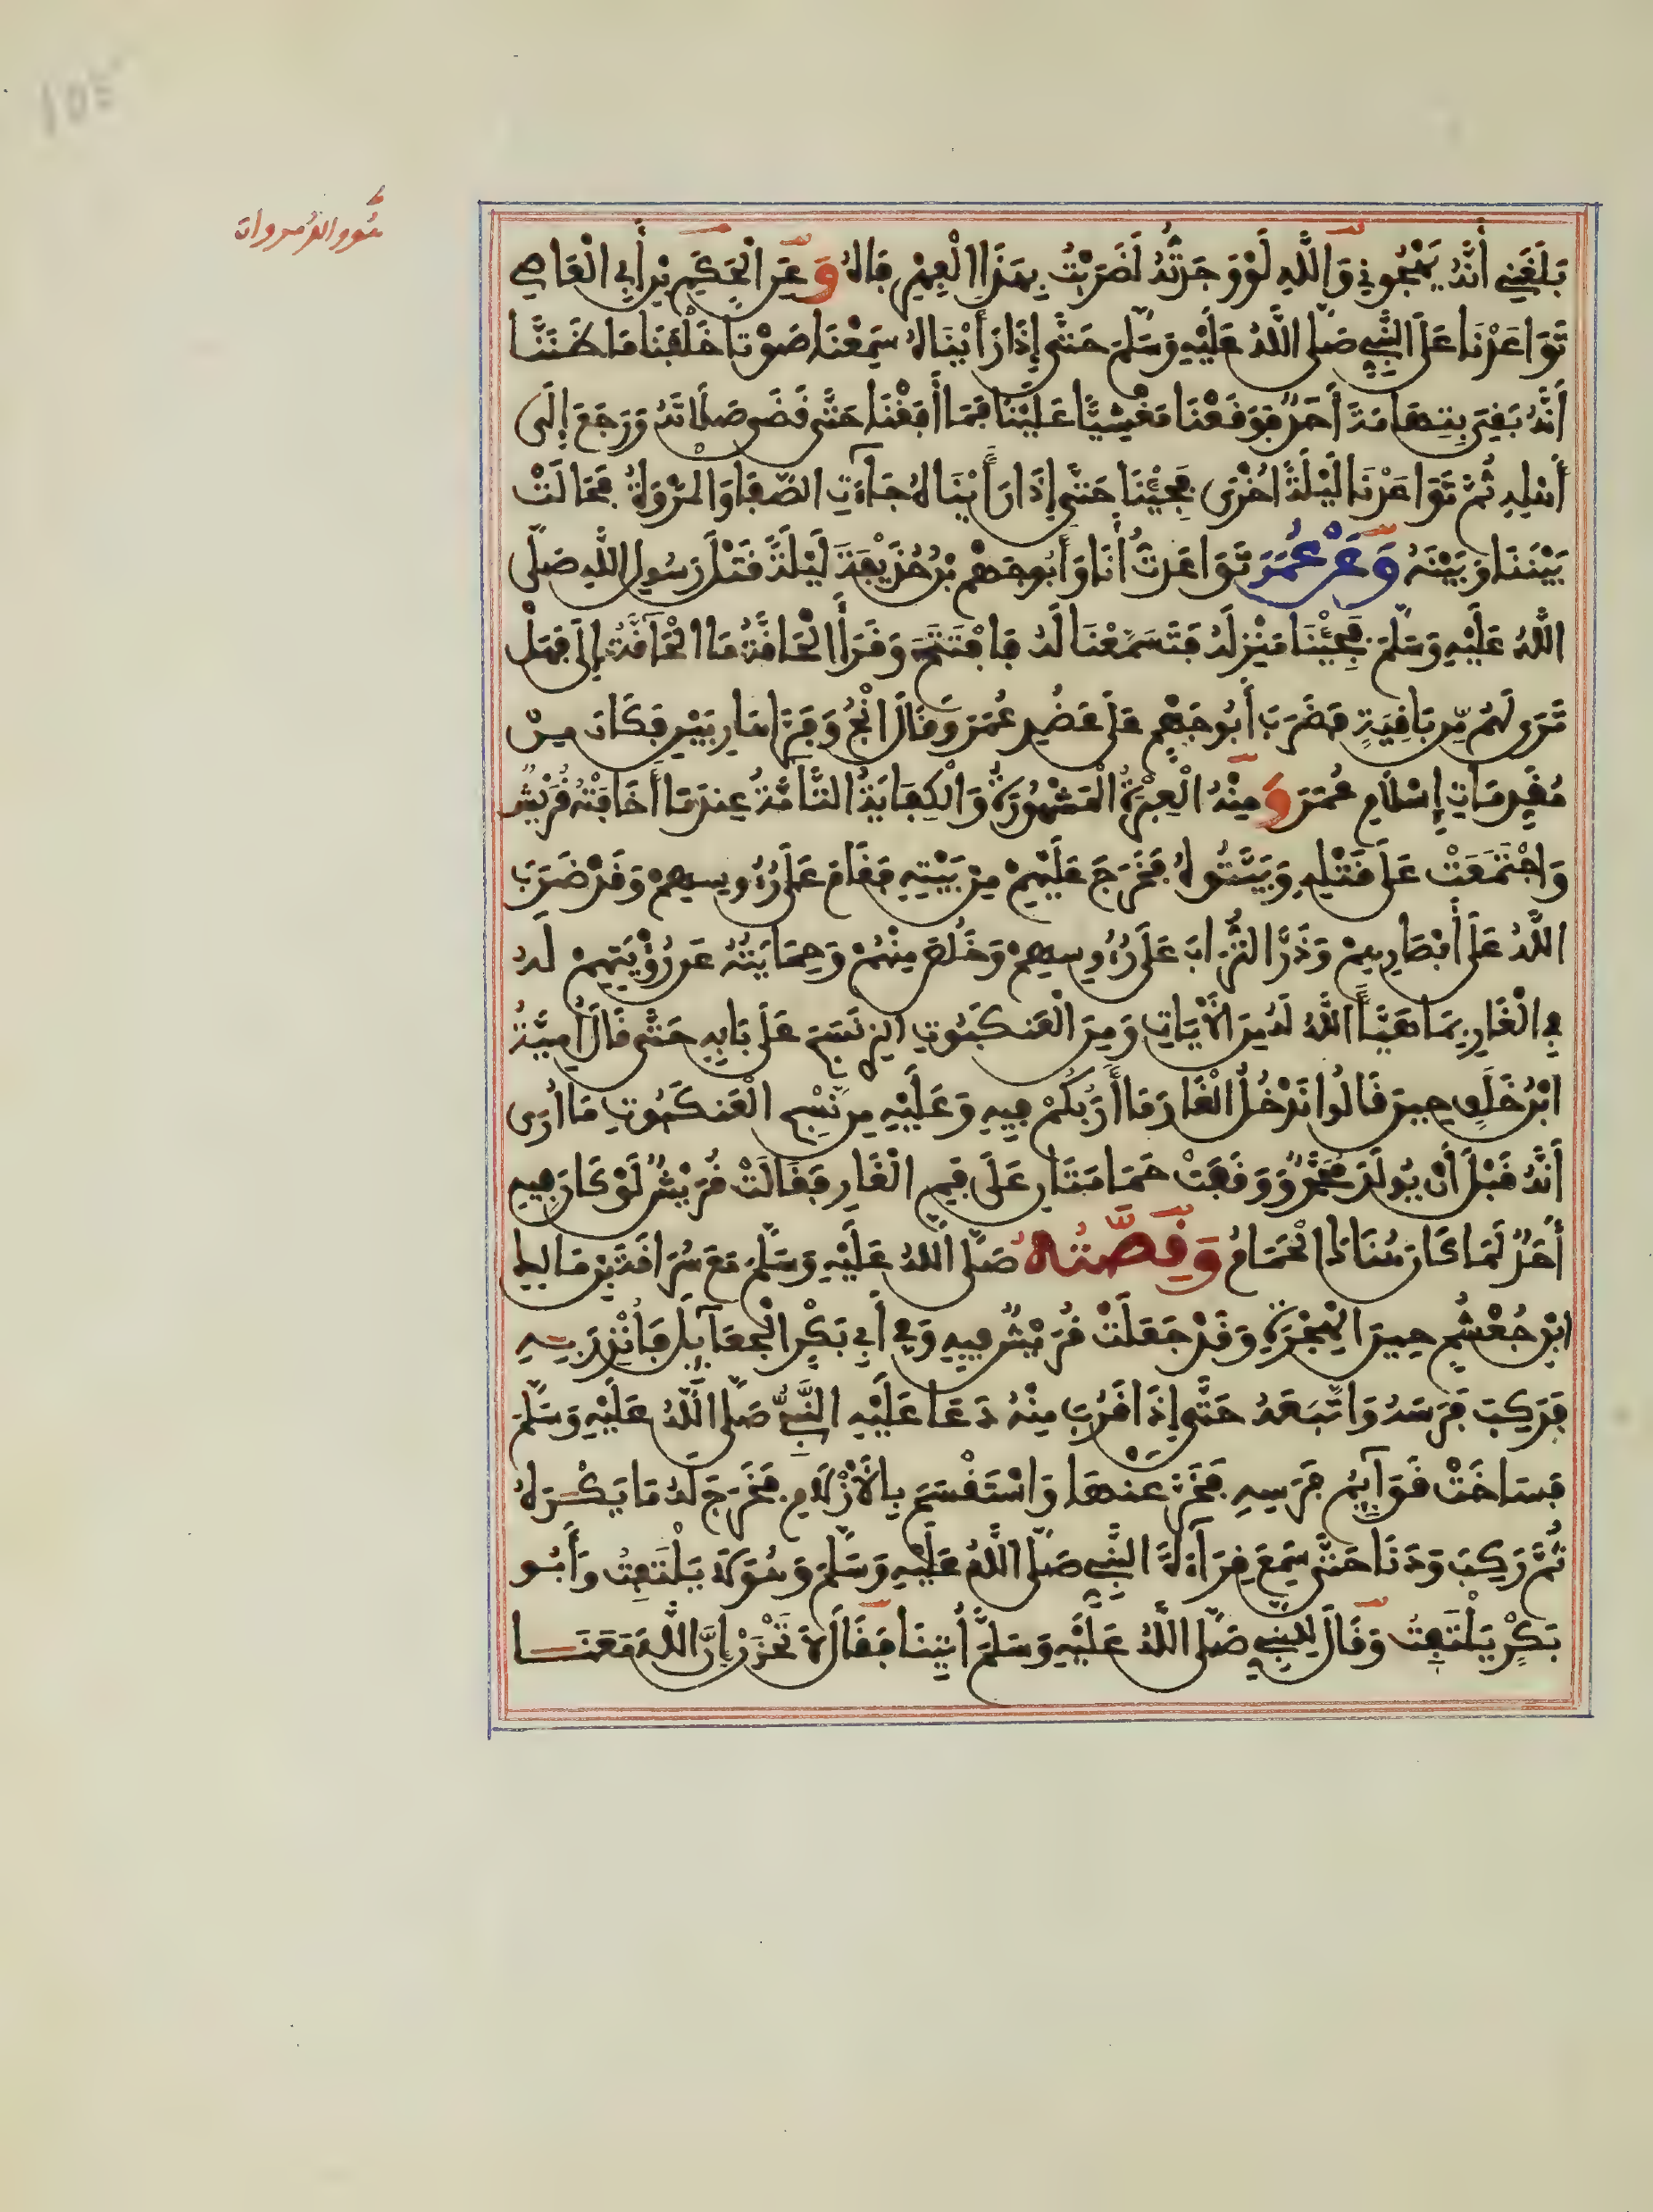 هُوَ والدُ مروان
بَلَغَنِي أَنَّهُ يَهْجُونِي وَاللَّهِ لَوْ وَجَدتُّهُ لَضَرَبْتُ بِهَذَا الْفِهْرِ فَاهُ وَعَنِ الْحَكَمِ بْنِ أَبِي الْعَاصِي
تَوَاعَدْنَا عَلَى النَّبِيِّ صَلَّى اللَّهُ عَلَيْهِ وَسَلَّمَ حَتَّى إِذَا رَأَيْنَاهُ سَمِعْنَا صَوْتًا خَلْفَنَا مَا ظَنَنَّا
أَنَّهُ بَقِيَ بِتِهَامَةَ أَحَدٌ فَوَقَعْنَا مَغْشِيًّا عَلَيْنَا فَمَا أَفَقْنَا حَتَّى قَضَى صَلَاتَهُ وَرَجَعَ إِلَى
أَهْلِهِ ثُمَّ تَوَاعَدْنَا لَيْلَةً أُخْرَى فَجِئْنَا حَتَّى إِذَا رَأَيْنَاهُ جَاءَتِ الصَّفَا وَالْمَرْوَةُ فَحَالَتْ
بَيْنَنَا وَبَيْنَهُ وَعَنْ عُمَرَ تَوَاعَدتُّ أَنَا وَأَبُو جَهْمِ بْنُ حُذَيْفَةَ لَيْلَةً قَتْلَ رَسُولِ اللَّهِ صَلَّى
اللَّهُ عَلَيْهِ وَسَلَّمَ فَجِئْنَا مَنْزِلَهُ فَتَسَمَّعْنَا لَهُ فَافْتَتَحَ وَقَرَأَ الْحَاقَّةُ مَا الْحَاقَّةُ إِلَى فَهَلْ
تَرَى لَهُم مِّن بَاقِيَةٍ فَضَرَبَ أَبُو جَهْمٍ عَلَى عَضُدِ عُمَرَ وَقَالَ انْجُ وَفَرَّا هَارِبَيْنِ فَكَانَ مِنْ
مُقَدِّمَاتِ إِسْلَامِ عُمَرَ وَمِنْهُ الْعِبْرَةُ الْمَشْهُورَةُ وَالْكِفَايَةُ التَّامَّةُ عِندَمَا أَخَافَتْهُ قُرَيْشٌ
وَاجْتَمَعَتْ عَلَى قَتْلِهِ وَبَيَّتُوهُ فَخَرَجَ عَلَيْهِمْ مِنْ بَيْتِهِ فَقَامَ عَلَى رُءُوسِهِمْ وَقَدْ ضَرَبَ
اللَّهُ عَلَى أَبْصَارِهِمْ وَذَرَّ التُّرَابَ عَلَى رُءُوسِهِمْ وَخَلَصَ مِنْهُمْ وَحِمَايَتُهُ عَن رُؤْيَتِهِمْ لَهُ
فِي الْغَارِ بِمَا هَيَّأَ اللَّهُ لَهُ مِنَ الْأَيَاتِ وَمِنَ الْعَنكَبُوتِ الذِي نَسَجَ عَلَى بَابِهِ حَتَّى قَالَ أُمَيَّةُ
ابْنُ خَلَفٍ حِينَ قَالُوا نَدْخُلُ الْغَارَ مَا أَرَبُكُمْ فِيهِ وَعَلَيْهِ مِن نَّسْجِ الْعَنكَبُوتِ مَا أُرَى
أَنَّهُ قَبْلَ أَنْ يُولَدَ مُحَمَّدٌ وَوَقَفَتْ حَمَامَتَانِ عَلَى فَمِ الْغَارِ فَقَالَتْ قُرَيْشٌ لَوْ كَانَ فِيهِ
أَحَدٌ لَمَا كَانَ هُنَاكَ الْحَمَامُ وَقِصَّتُهُ صَلَّى اللَّهُ عَلَيْهِ وَسَلَّمَ مَعَ سُرَاقَةَ بْنِ مَالِكِ
ابْنِ جُعْشُمٍ حِينَ الْهِجْرَةِ وَقَدْ جَعَلَتْ قُرَيْشٌ فِيهِ وَفِي أَبِي بَكْرٍ الْجَعَآئِلَ فَأُنْذِرَ بِهِ
فَرَكِبَ فَرَسَهُ وَاتَّبَعَهُ حَتَّى إِذَا قَرُبَ مِنْهُ دَعَا عَلَيْهِ النَّبِيُّ صَلَّى اللَّهُ عَلَيْهِ وَسَلَّمَ
فَسَاخَتْ قَوَآئِمُ فَرَسِهِ فَخَرَّ عَنْهَا وَاسْتَقْسَمَ بِالْأَزْلَامِ فَخَرَجَ لَهُ مَا يَكْرَهُ
ثُمَّ رَكِبَ وَدَنَا حَتَّى سَمِعَ قِرَآءَةَ النَّبِيِّ صَلَّى اللَّهُ عَلَيْهِ وَسَلَّمَ وَهُوَ لَا يَلْتَفِتُ وَأَبُو
بَكْرٍ يَلْتَفِتُ وَقَالَ لِلنَّبِيِّ صَلَّى اللَّهُ عَلَيْهِ وَسَلَّمَ أُتِينَا فَقَالَ لَا تَحْزَنْ إِنَّ اللَّهَ مَعَنَا